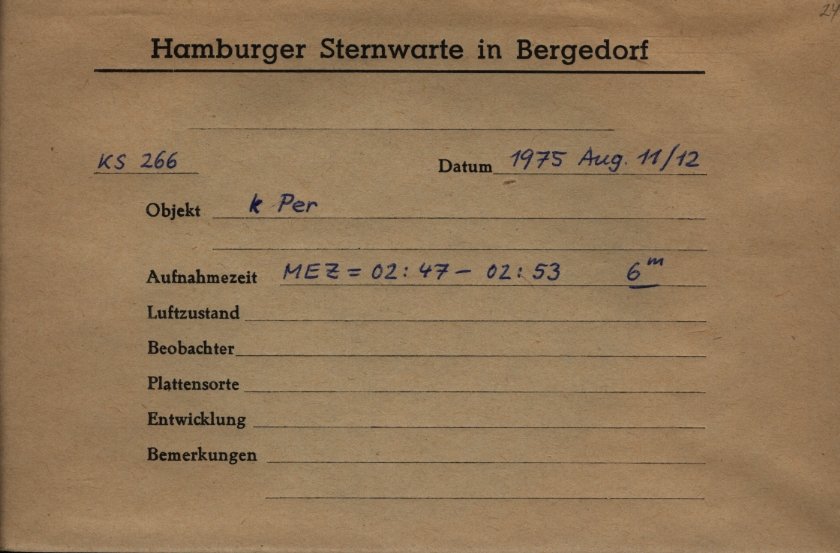 Hamburger Sternwarte in Bergedorf
KS 266 Datum 1975 Aug. 11/12
Objekt k Per
Aufnahmezeit MEZ = 02:47 – 02:53 6ᵐ
Luftzustand
Beobachter
Plattensorte
Entwicklung
Bemerkungen